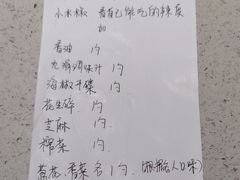 小米椒 看自己能吃的辣度
加
香油 1勺
1勺
海椒 1勺
花生碎 1勺
芝麻 1勺
榨菜 1勺
葱花、香菜各1勺 (根据个人口味)